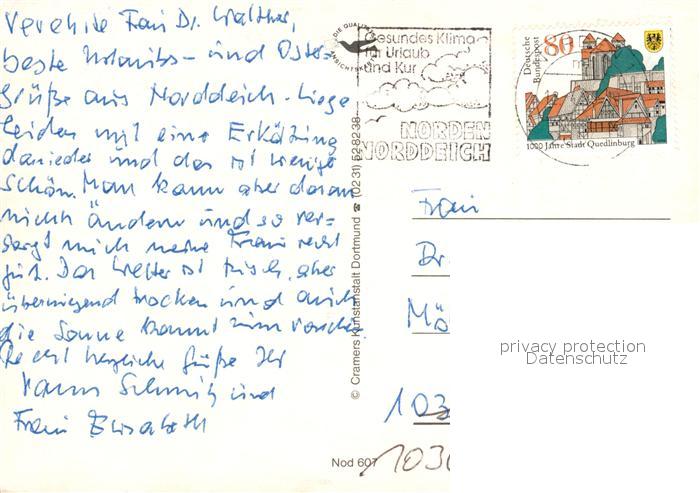 Verehrte Frau Dr. Walther,
beste Urlaubs- und Oster-
grüße aus Norddeich. Liege
leider mit eine Erkältung
danieder und das ist wenig
schön. Man kann aber daran
nichts ändern und so ver=
sorgt mich meine Frau recht
gut. Das Wetter ist frisch, aber
überwiegend trocken und auch
die Sonne kommt zum Vorschein.
Recht herzliche Grüße Ihr
Hanns Schmitz und
Frau Elisabeth
© Cramers Kunstanstalt Dortmund ☎ (0231) 528238
Nod 607
DIE QUALITÄTS
ANSICHTSKARTE
Gesundes Klima
für Urlaub
und Kur
NORDEN
NORDDEICH
Deutsche
Bundespost
80
1000 Jahre Stadt Quedlinburg
Frau
Dr.
Mö
103
1030
privacy protection
Datenschutz